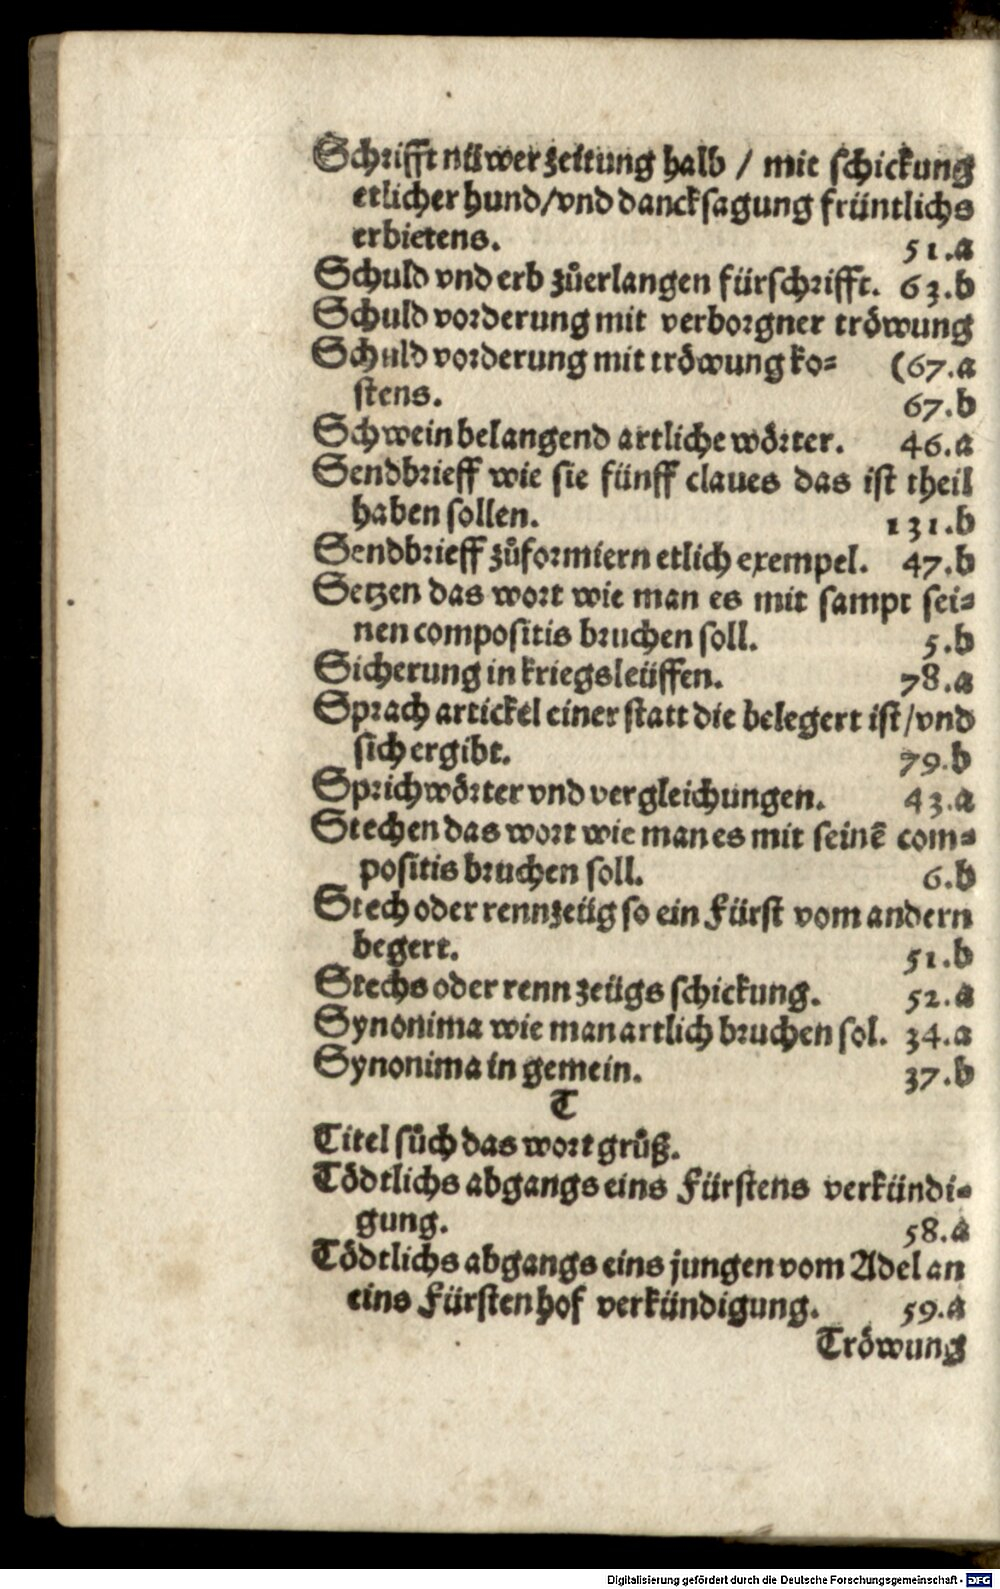 Schrifft nüwer zeitung halb / mit schickung
etlicher hund/vnd dancksagung früntlichs
erbietens. 51.a
Schuld vnd erb zůerlangen fürschrifft. 63.b
Schuld vorderung mit verborgner tröwung
Schuld vorderung mit tröwung ko= (67.a
stens. 67.b
Schwein belangend artliche wörter. 46.a
Sendbrieff wie sie fünff claues das ist theil
haben sollen. 131.b
Sendbrieff zůformiern etlich exempel. 47.b
Setzen das wort wie man es mit sampt sei=
nen compositis bruchen soll. 5.b
Sicherung in kriegsleüffen. 78.a
Sprach artickel einer statt die belegert ist/vnd
sich ergibt. 79.b
Sprichwörter vnd vergleichungen. 43.a
Stechen das wort wie man es mit seinē com=
positis bruchen soll. 6.b
Stech oder rennzeüg so ein Fürst vom andern
begert. 51.b
Stechs oder renn zeügs schickung. 52.a
Synonima wie man artlich bruchen sol. 34.a
Synonima in gemein. 37.b
T
Titel sůch das wort grůß.
Tödtlichs abgangs eins Fürstens verkündi=
gung. 58.a
Tödtlichs abgangs eins jungen vom Adel an
eins Fürsten hof verkündigung. 59.a
Tröwung
Digitalisierung gefördert durch die Deutsche Forschungsgemeinschaft - DFG